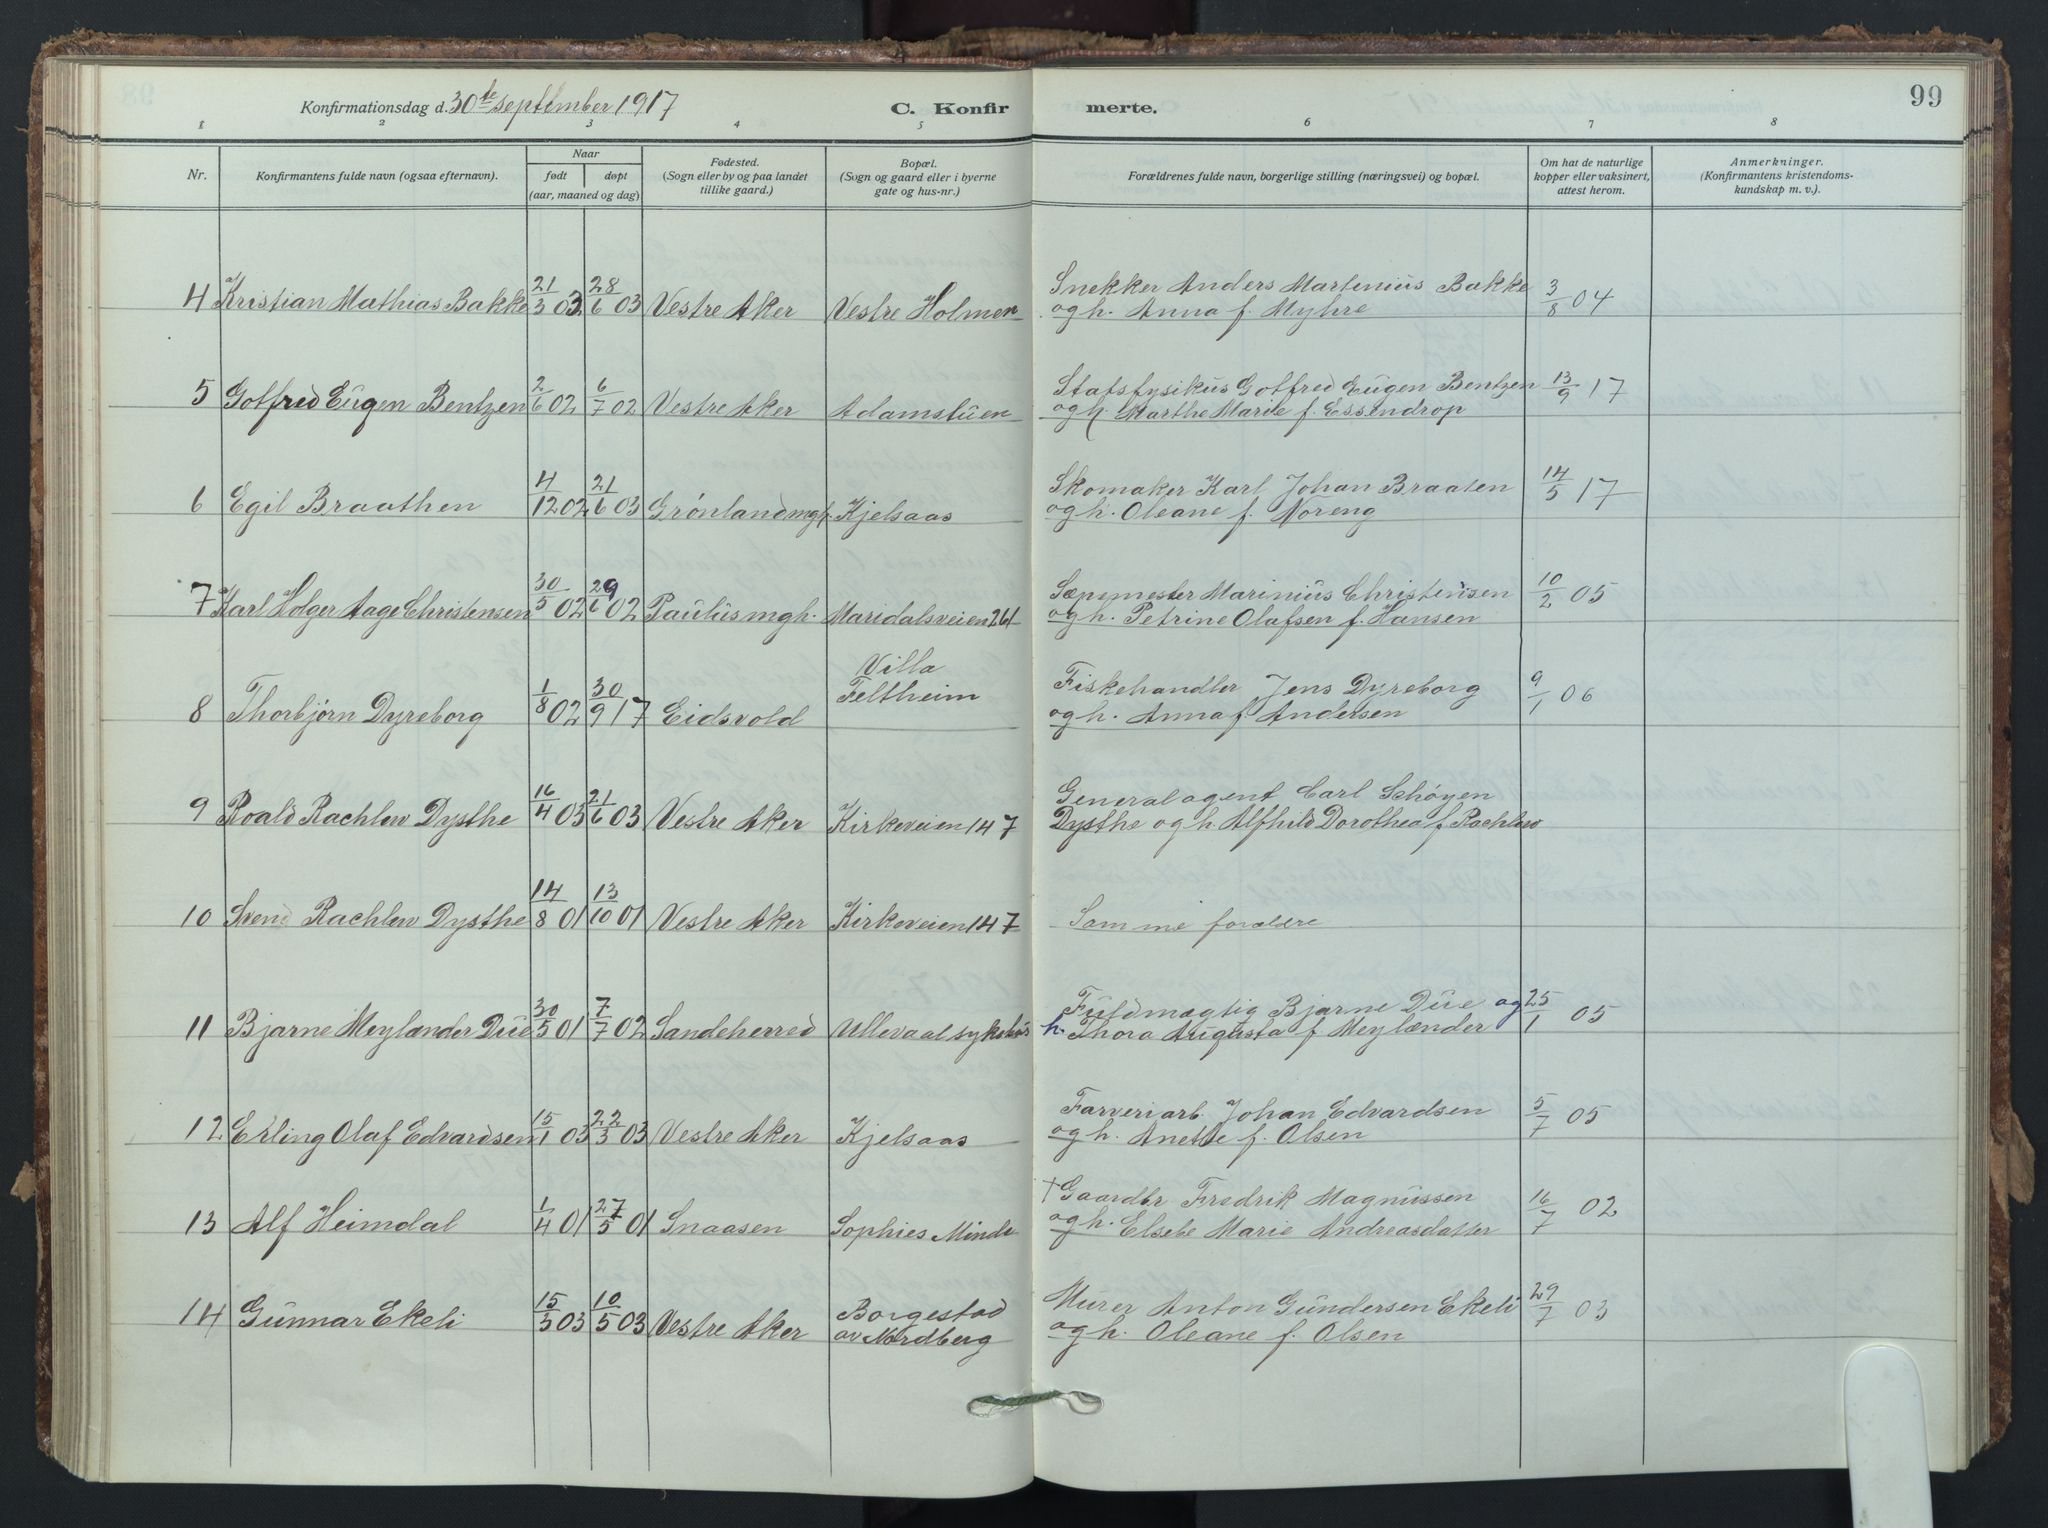 Konfirmationsdag d. 30te september 1917 C. Konfirmerte. 99
1 2 3 4 5 6 7 8
Nr. Konfirmantens fulde navn (ogsaa efternavn). Naar født døpt (aar, maaned og dag) Fødested. (Sogn eller by og paa landet tillike gaard.) Bopæl. (Sogn og gaard eller i byerne gate og hus-nr.) Forældrenes fulde navn, borgerlige stilling (næringsvei) og bopæl. Om hat de naturlige kopper eller vaksinert, attest herom. Anmerkninger. (Konfirmantens kristendomskundskap m. v.).
4 Kristian Mathias Bakke 21/3 03 28/6 03 Vestre Aker Vestre Holmen Snekker Anders Martenius Bakke 3/8 04
og h. Anna f. Myhre
5 Gotfred Eugen Bentzen 2/6 02 6/7 02 Vestre Aker Adamstuen Statsfysikus Gotfred Eugen Bentzen 13/9 17
og h. Marthe Marie f. Essendrop
6 Egil Braathen 4/12 02 21/6 03 Grønland mgh. Kjelsaas Skomaker Karl Johan Braaten 14/5 17
og h. Oleane f. Noreng
7 Karl Holger Aage Christensen 30/5 02 29/6 02 Paulus mgh. Maridalsveien 261 Sæpemester Marinius Christensen 10/2 05
og h. Petrine Olafsen f. Hansen
8 Thorbjørn Dyreborg 1/8 02 30/9 17 Eidsvold Villa Feltheim Fiskehandler Jens Dyreborg 9/1 06
og h. Anna f. Andersen
9 Roald Rachlew Dysthe 16/4 03 21/6 03 Vestre Aker Kirkeveien 147 Generalagent Carl Schøyen
Dysthe og h. Alfhild Dorothea f. Rachlew
10 Svend Rachlew Dysthe 14/8 01 13/10 01 Vestre Aker Kirkeveien 147 Samme forældre
11 Bjarne Meylænder Due 30/5 01 7/7 02 Sandeherred Ullevaal sykehus Fuldmægtig Bjarne Due og 25/1 05
h. Thora Augusta f. Meylænder
12 Erling Olaf Edvardsen 15/1 03 22/3 03 Vestre Aker Kjelsaas Farveriarb. Johan Edvardsen 5/7 05
og h. Anette f. Olsen
13 Alf Heimdal 1/4 01 27/5 01 Snaasen Sophies Minde † Gaardbr. Fredrik Magnussen 16/7 02
og h. Elsebe Marie Andreasdatter
14 Gunnar Ekeli 15/3 03 10/5 03 Vestre Aker Borgestad av Nordberg Murer Anton Gundersen Ekeli 29/7 03
og h. Oleane f. Olsen